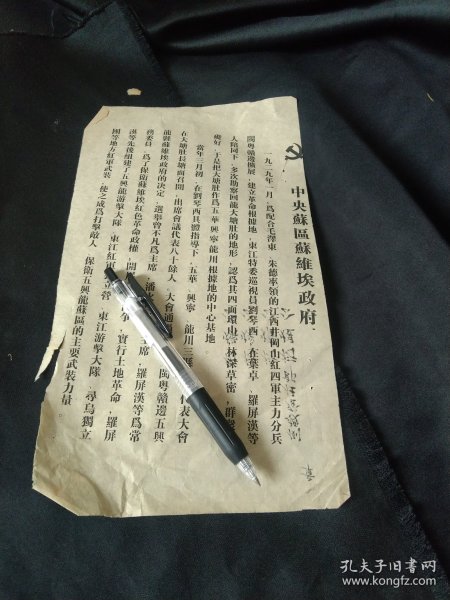 中央蘇區蘇維埃政府
一九二九年一月，爲配合毛澤東、朱德率領的江西井岡山紅四軍主力分兵
閩粤贛邊擴展，建立革命根據地，東江特委巡視員劉琴西、在葉卓、羅屏漢等
人陪同下，多次勘察回龍大塘肚的地形，認爲其四面環山，林深草密，群衆
處好，于是把大塘肚作爲五華興寧龍川根據地的中心基地
當年三月初，在劉琴西具體指導下，五華、興寧、龍川三
代表大會
在大塘肚長塘面召開，出席會議代表八十餘人，大會
閩粤贛邊五興
龍縣蘇維埃政府的决定，選舉曾不凡爲主席，潘
主席，羅屏漢等爲常
務委員，爲了保衛蘇維埃紅色革命政權，開
實行土地革命，羅屏
漢等先後組建了五興龍游擊大隊，東江紅軍
營，東江游擊大隊，尋烏獨立
團等地方紅軍武裝，使之成爲打擊敵人，保衛五興龍蘇區的主要武裝力量
孔夫子旧書网
www.kongfz.com